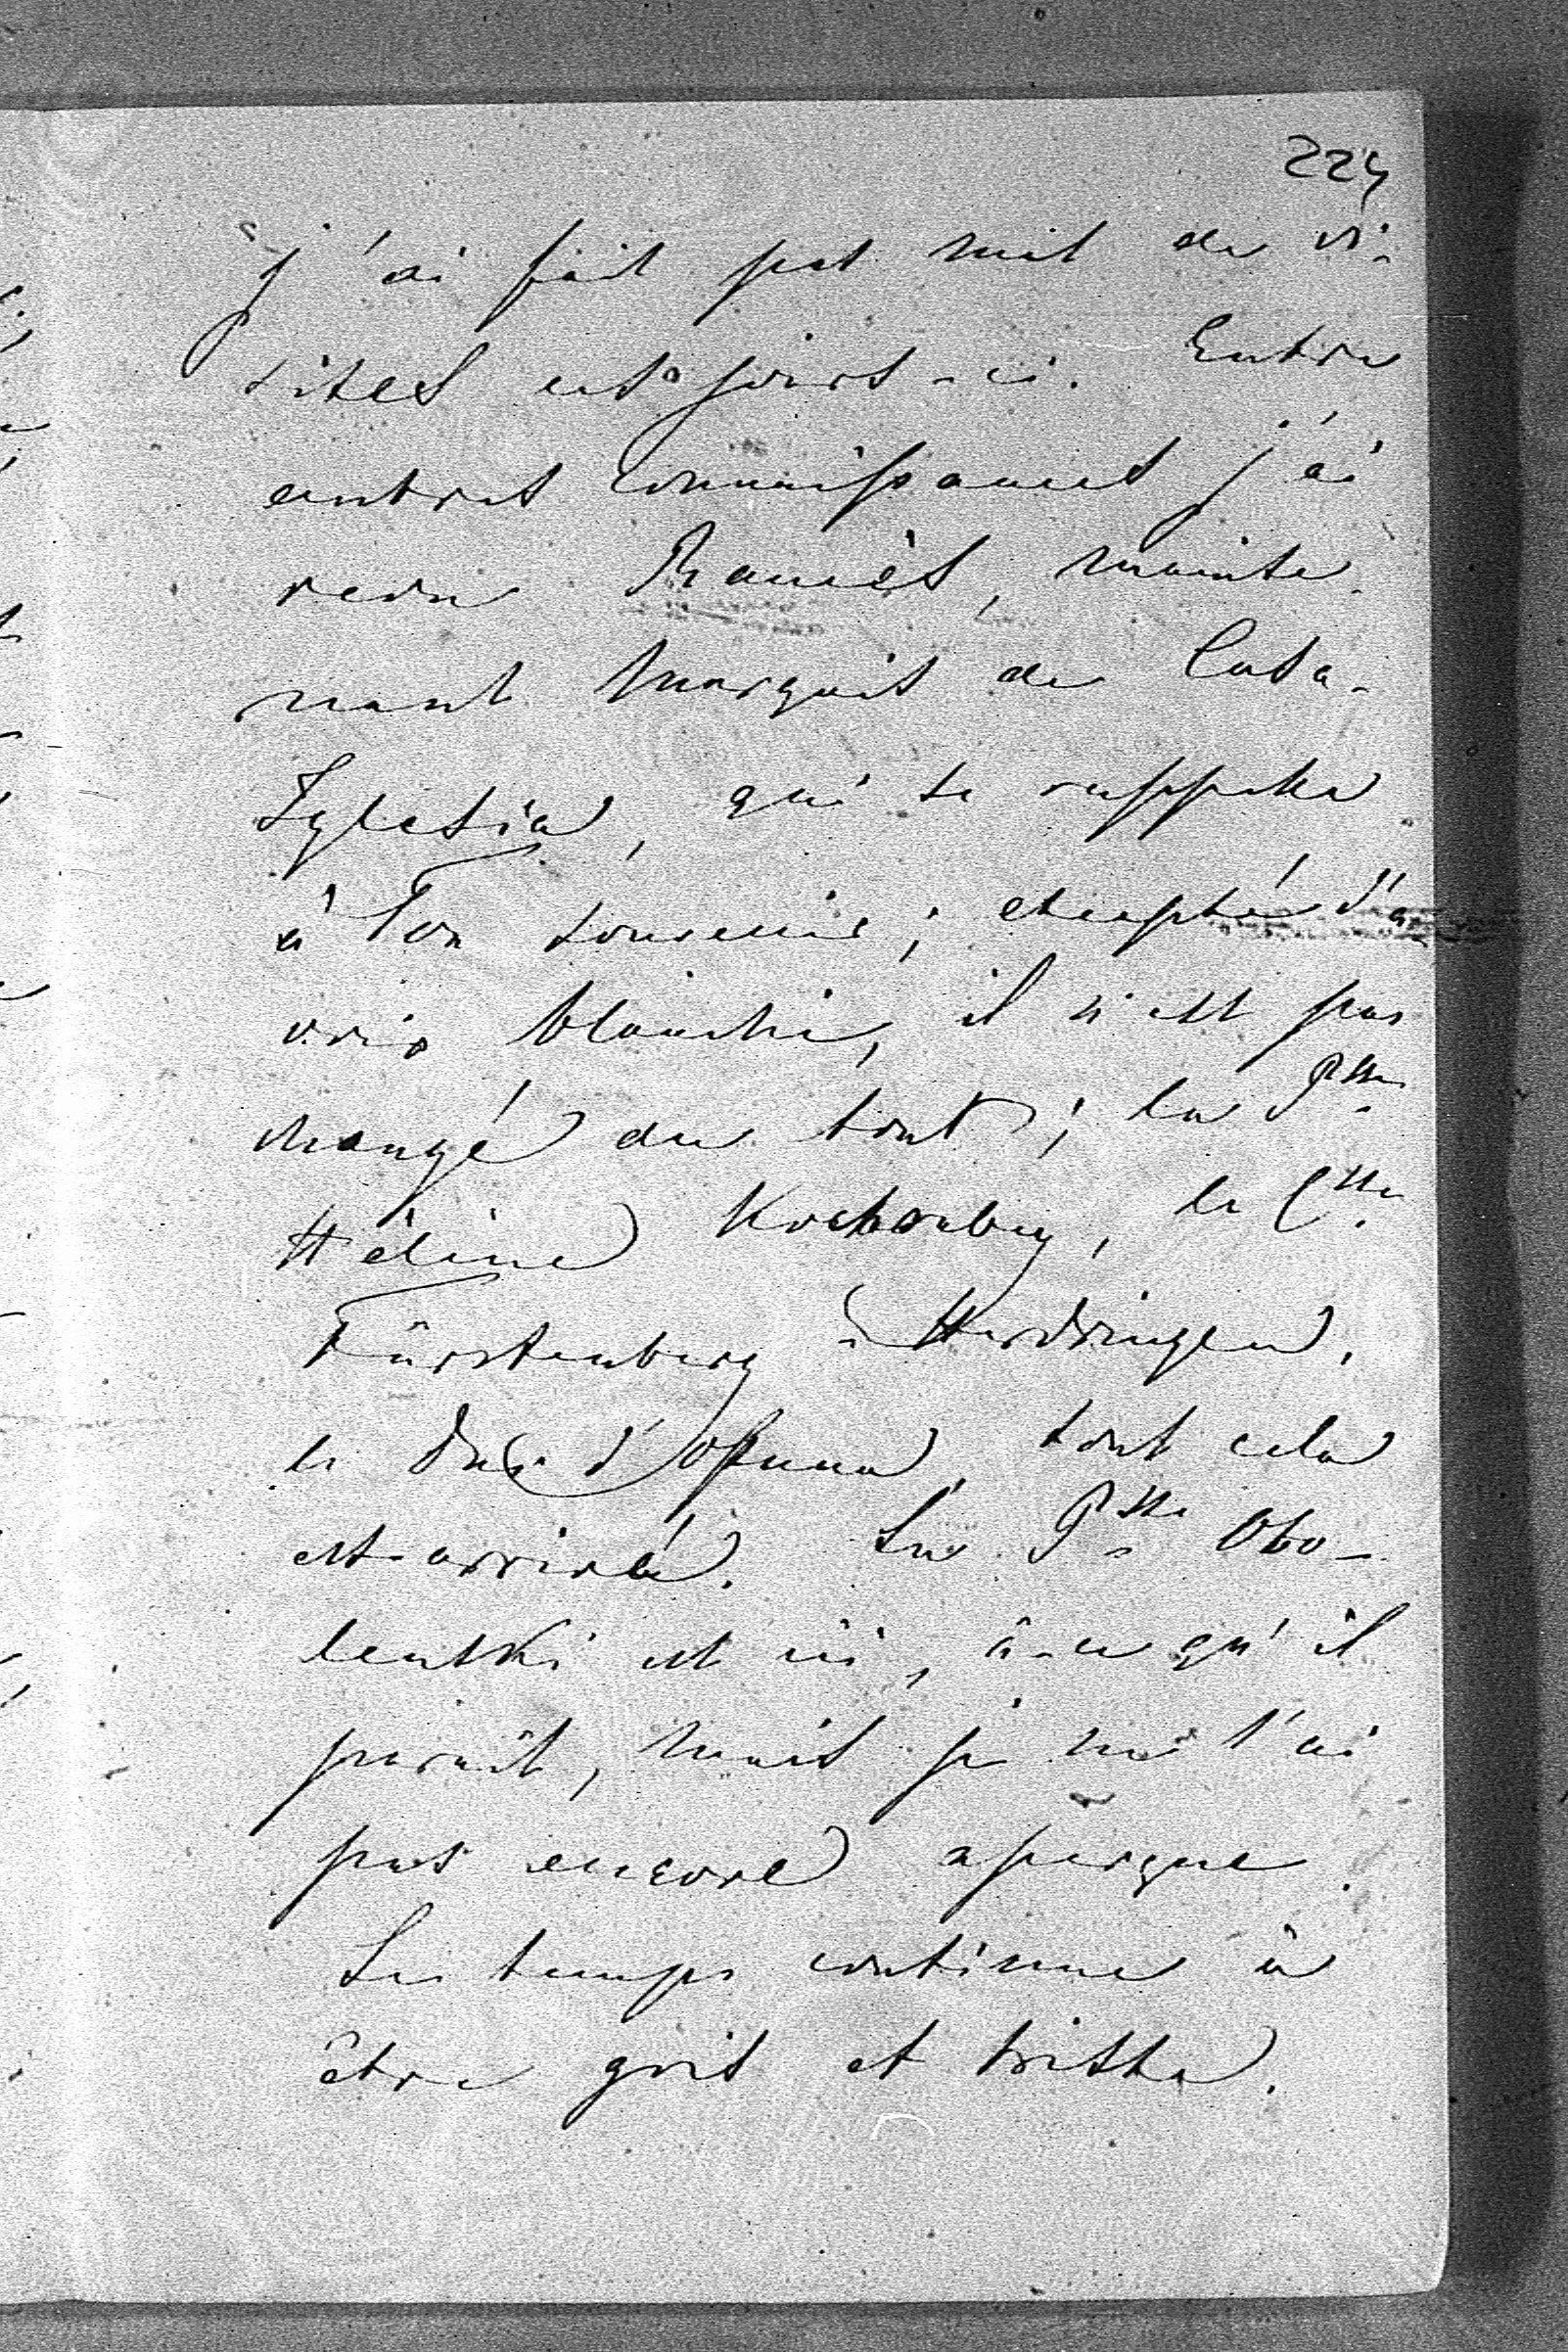 224
j'ai fait pas mal de vi-
sites ces jours-ci. Entre
autres connaissances j'ai
revu Rancès, mainte-
nant Marquis de Casa-
Iglesia, qui se rappelle
à Ton souvenir; excepté d'a-
voir blanchi, il n'est pas
changé du tout; la Psse
Hélène Kotchoubey, le Cte
Fürstenberg-Herdringen,
le Duc d'Ossuna, tout cela
est arrivé. La Psse Obo-
lenski est ici, à-ce qu'il
parait, mais je ne l'ai
pas encore aperçue.
Le temps continue à
être gris et triste.